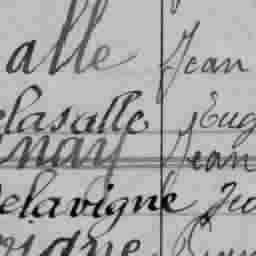 alle Jean
elasalle Eug
nay Jean
elavigne Je
vigne